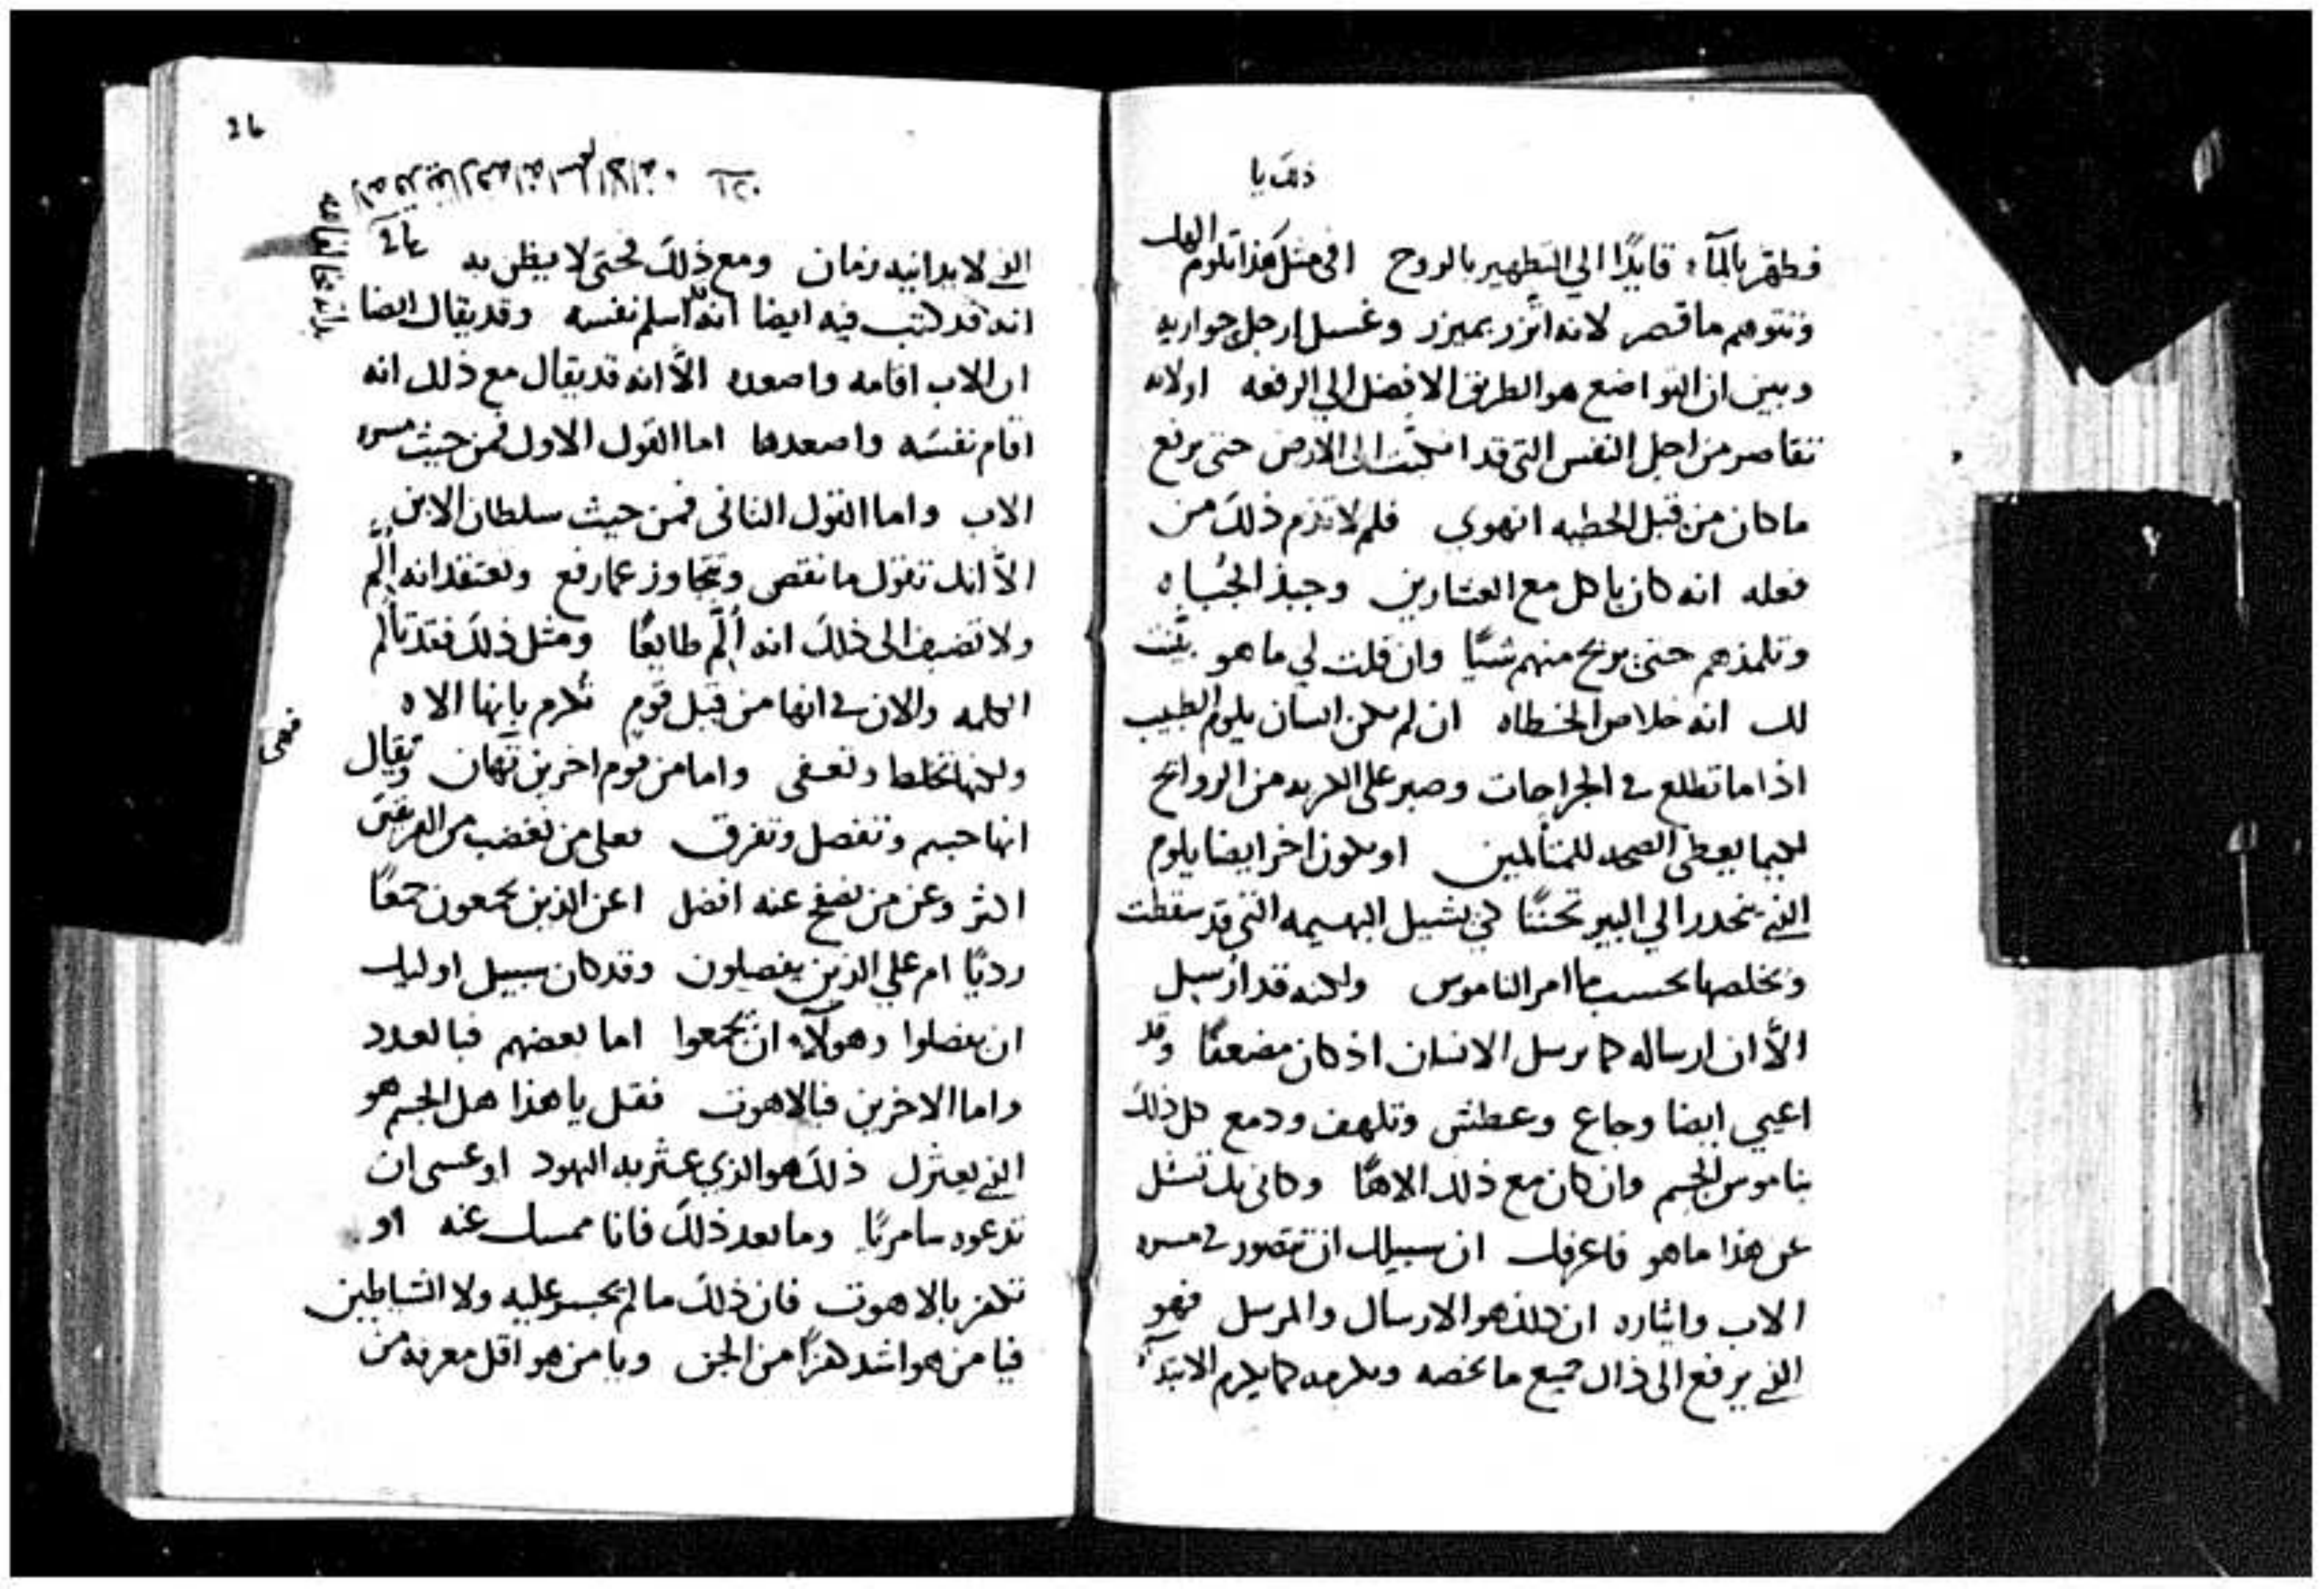 ذلك يا
فطهر بالماء قايدًا الي التطهير بالروح افي مثل هذا تلوم الهك
وتتوهم ما قصر لانه اتزر بميزر وغسل ارجل حواريه
وبين ان التواضع هو الطريق الافضل الي الرفعه اولانه
تقاصر من اجل النفس التي قد انكبت الى الارض حتى يرفع
ما كان من قبل الخطيه انهوي فلم لا تذم ذلك من
فعله انه كان ياكل مع العشارين وجبذ الجباه
وتلمذهم حتى يربح منهم شيًا وان قلت لي ما هو بينت
لك انه خلاص الخطاه ان لم يكن انسان يلوم الطبيب
اذا ما تطلع في الجراحات وصبر على الكريه من الروايح
لكيما يعطي الصحه للمتالمين او يكون اخر ايضا يلوم
الذي ينحدر الي البير تحننًا لكي ينشيل البهيمه التي قد سقطت
ويخلصها بحسب ما امر الناموس ولكنه قد ارسل
الا ان ارساله كما يرسل الانسان اذ كان مضعفًا وقد
اعيي ايضا وجاع وعطش وتلهف ودمع كل ذلك
بناموس الجسم وان كان مع ذلك الاهًا وكاني بك تسل
عن هذا ما هو فاعرفك ان سبيلك ان تتصور في مسره
الاب وايثاره ان ذلك هو الارسال والمرسل فهو
الذي يرفع الى ذاك جميع ما يخصه ويكرمه كما يكرم الابتدآء
24
24
الذي لا يدانيه زمان ومع ذلك فحتى لا يظن به
انه قد كتب فيه ايضا انه اسلم نفسه وقد يقال ايضا
ان الاب اقامه واصعده الا انه قد يقال مع ذلك انه
اقام نفسه واصعدها اما القول الاول فمن حيث مسره
الاب واما القول الثاني فمن حيث سلطان الابن
الا انك تقول ما نقص وتتجاوز عما رفع وتعتقد انه الم
ولا تضيف الى ذلك انه الم طايعًا ومثل ذلك فقد تالم
الكلمه والان في انها من قبل قوم تكرم بانها الاه
ولكنها تخلط وتعفى واما من قوم اخرين تهان ويقال
انها جسم وتنفصل وتفرق فعلى من تغضب من الفريقين
اكثر وعن من تصفح عنه افضل اعن الذين يجمعون جمعًا
رديًا ام علي الذين يفصلون وقد كان سبيل اوليك
ان يفصلوا وهولآء ان يجمعوا اما بعضهم فبالعدد
واما الاخرين فبالاهوت فقل يا هذا هل الجسم هو
الذي يعثرك ذلك هو الذي عثر به اليهود او عسى ان
تدعوه سامريًا وما بعد ذلك فانا ممسك عنه او
تكفر بالاهوت فان ذلك ما لم يجسر عليه ولا الشياطين
فيا من هو اشد هزًا من الجن ويا من هو اقل معرفه من